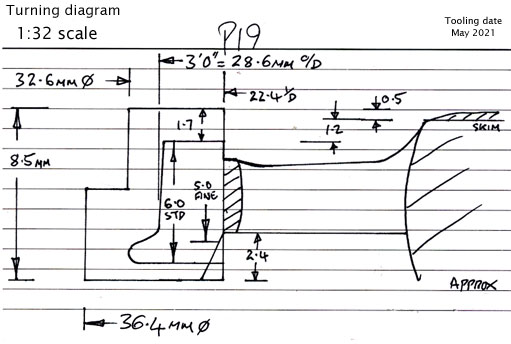 Turning diagram
1:32 scale
P19
Tooling date
May 2021
3'0" = 28.6mm O/D
32.6mm Ø
22.4 I/D
0.5
1.7
1.2
SKIM
8.5mm
6.0
STD
5.0
FINE
2.4
APPROX
36.4mm Ø